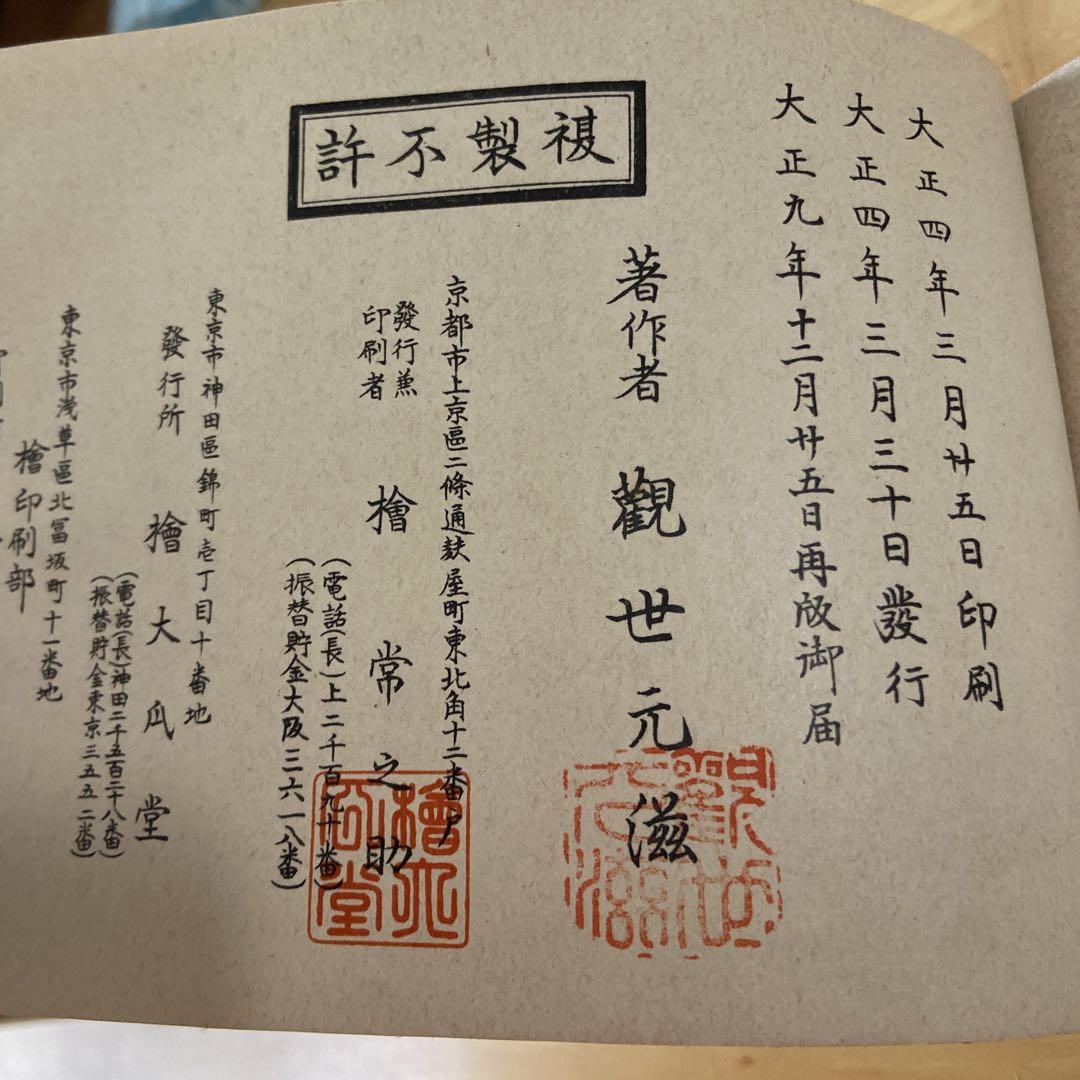 大正四年三月廿五日印刷
大正四年三月三十日發行
大正九年十二月廿五日再版御届
許不製複
著作者 觀世元滋
觀世元滋
京都市上京區二條通麸屋町東北角十二番戸
發行兼
印刷者 檜常之助
(電話(長)上二千百九十番)
(振替貯金大阪三六一八番)
檜大瓜堂
東京市神田區錦町壱丁目十番地
發行所 檜大瓜堂
(電話(長)神田二千五百二十八番)
(振替貯金東京三五五二番)
東京市浅草區北冨坂町十一番地
檜印刷部